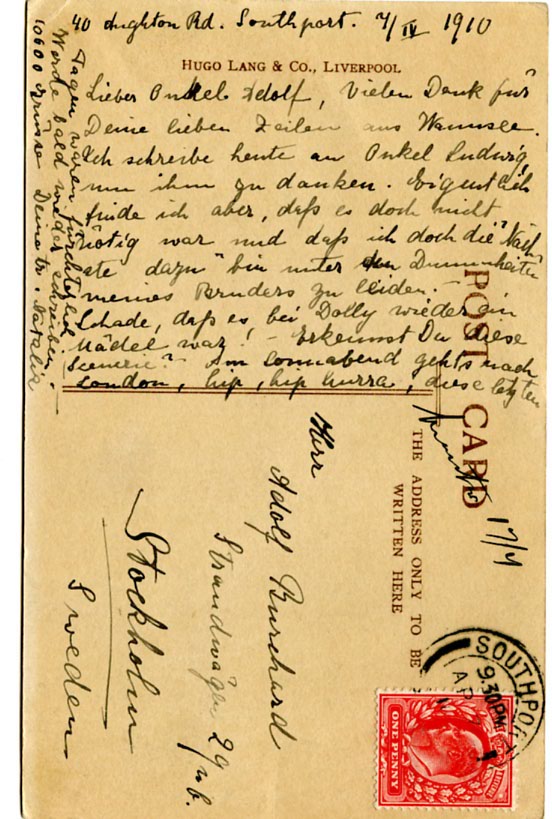 40 Aughton Rd. Southport. 7/IV 1910
HUGO LANG & Co., LIVERPOOL
Lieber Onkel Adolf, Vielen Dank für
Deine lieben Zeilen aus Wannsee.
Ich schreibe heute an Onkel Ludwig,
um ihm zu danken. Eigentlich
finde ich aber, daß es doch nicht
nötig war und daß ich doch die "Näch-
ste dazu" bin unter den Dummheiten
meines Bruders zu leiden. -
Schade, daß es bei Dolly wieder ein
Mädel war! - Erkennst Du diese
Scenerie? - Am Sonnabend gehts nach
London, hip, hip hurra, diese letzten
Tagen waren fürchterlich.
Werde bald wieder schreiben.
10600 Grüsse Deine tr. Natalie
POST CARD
THE ADDRESS ONLY TO BE
WRITTEN HERE
17/4
Herr
Adolf Burchard
Strandvägen 29
Stockholm
Sweden
SOUTHPORT
9.30PM
AP 7
ONE PENNY